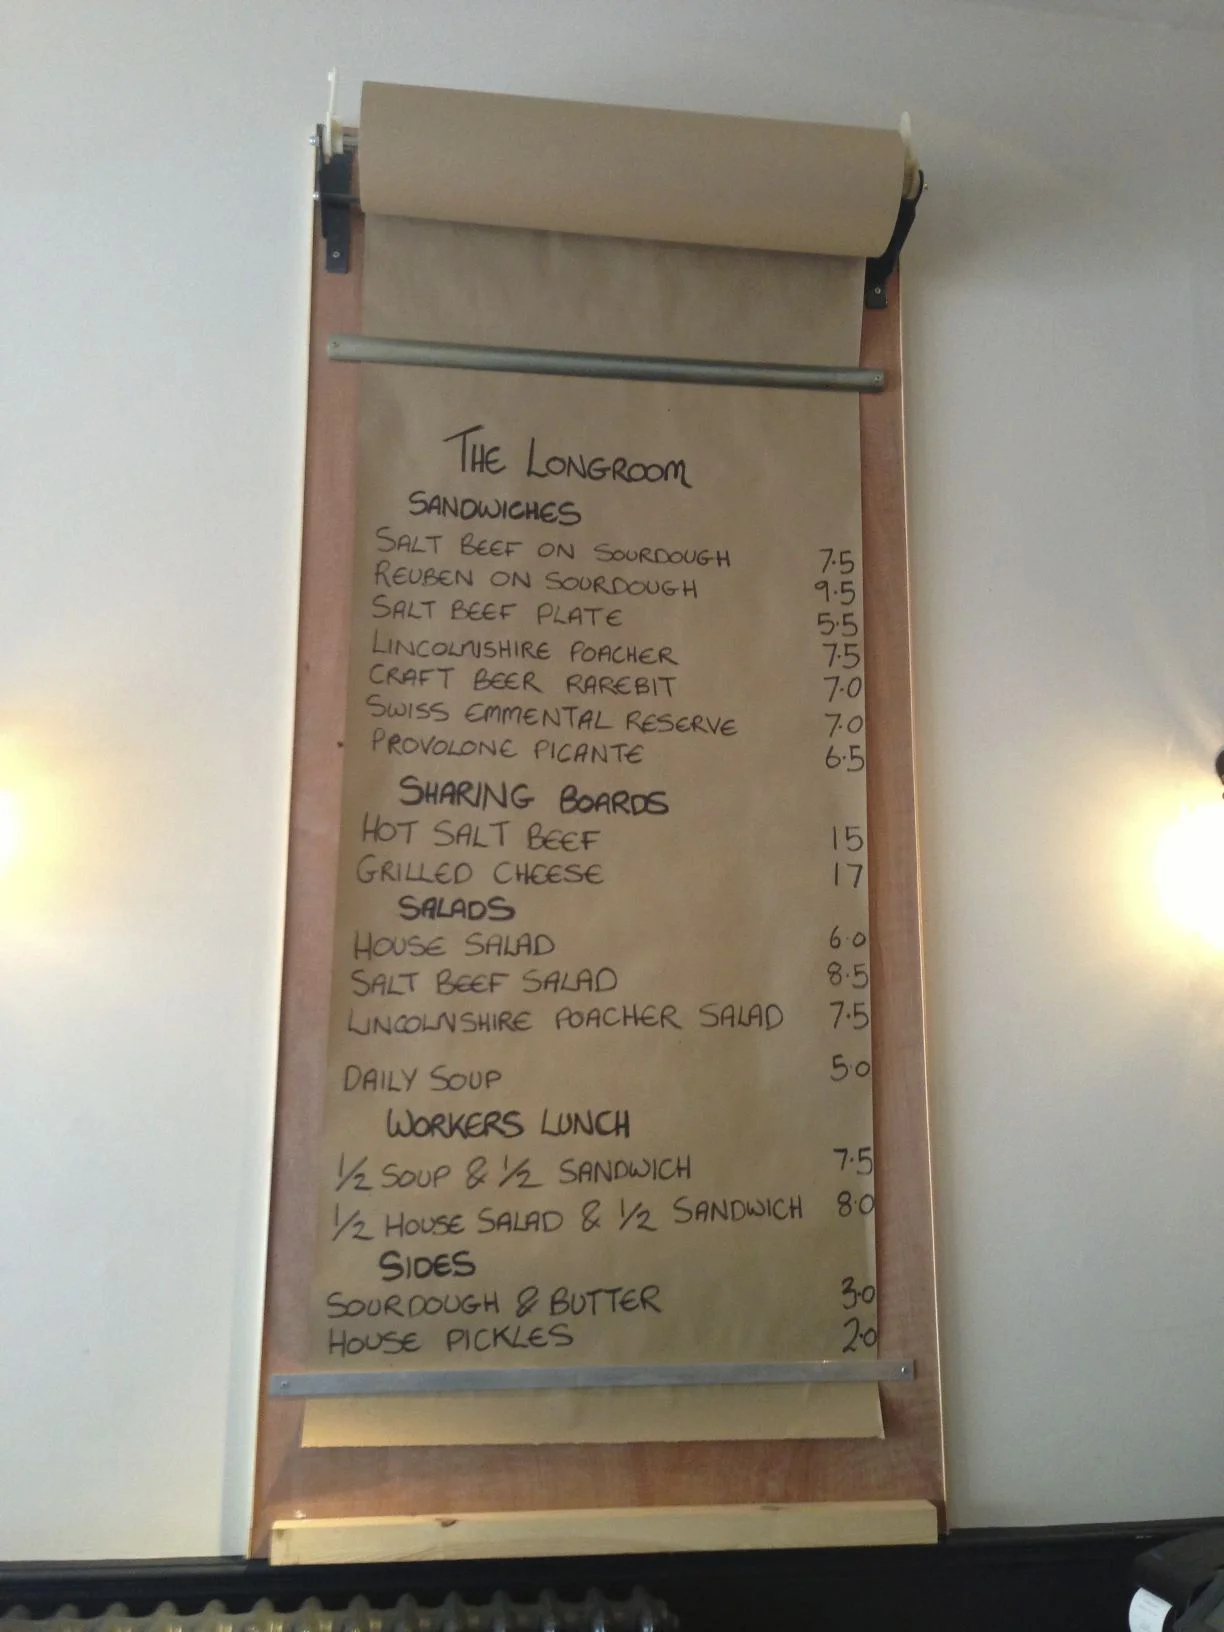 THE LONGROOM
SANDWICHES
SALT BEEF ON SOURDOUGH 7.5
REUBEN ON SOURDOUGH 9.5
SALT BEEF PLATE 5.5
LINCOLNSHIRE POACHER 7.5
CRAFT BEER RAREBIT 7.0
SWISS EMMENTAL RESERVE 7.0
PROVOLONE PICANTE 6.5
SHARING BOARDS
HOT SALT BEEF 15
GRILLED CHEESE 17
SALADS
HOUSE SALAD 6.0
SALT BEEF SALAD 8.5
LINCOLNSHIRE POACHER SALAD 7.5
DAILY SOUP 5.0
WORKERS LUNCH
1/2 SOUP & 1/2 SANDWICH 7.5
1/2 HOUSE SALAD & 1/2 SANDWICH 8.0
SIDES
SOURDOUGH & BUTTER 3.0
HOUSE PICKLES 2.0